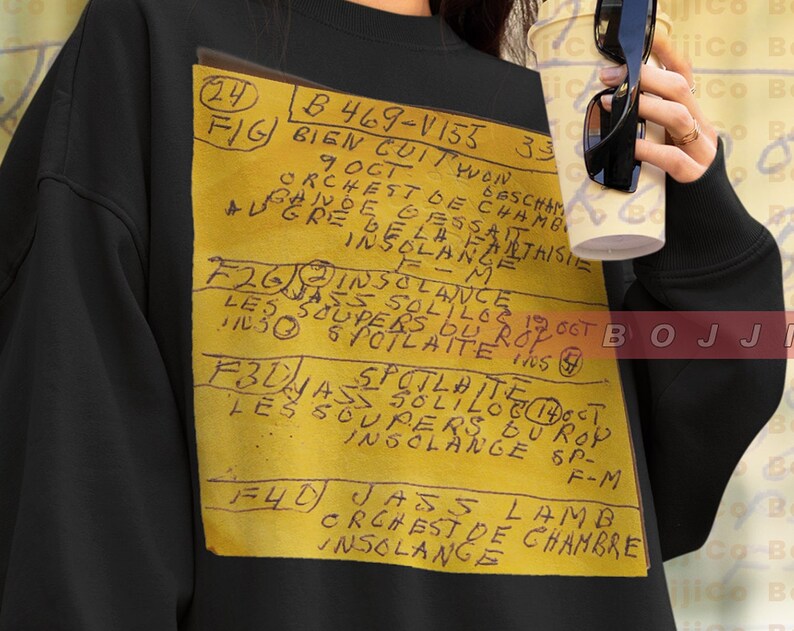 24
B 469-V155 33
F1G
BIEN CUIT WON
9 OCT DESCHAM
ORCHEST DE CHAMB
BANDE DESSAIT
AU GRE DE LA FANTHISIE
INSOLANGE
F-M
F2G 2 INSOLANCE
JASS SOLILOC 19 OCT
LES SOUPERS DU ROY
INS SPOTLAITE INS
F3D SPOTLAITE
JASS SOLILOC 14 OCT
LES SOUPERS DU ROY
INSOLANGE SP-
F-M
F4D JASS LAMB
ORCHEST DE CHAMBRE
INSOLANGE
BOJJI
BojjiCo